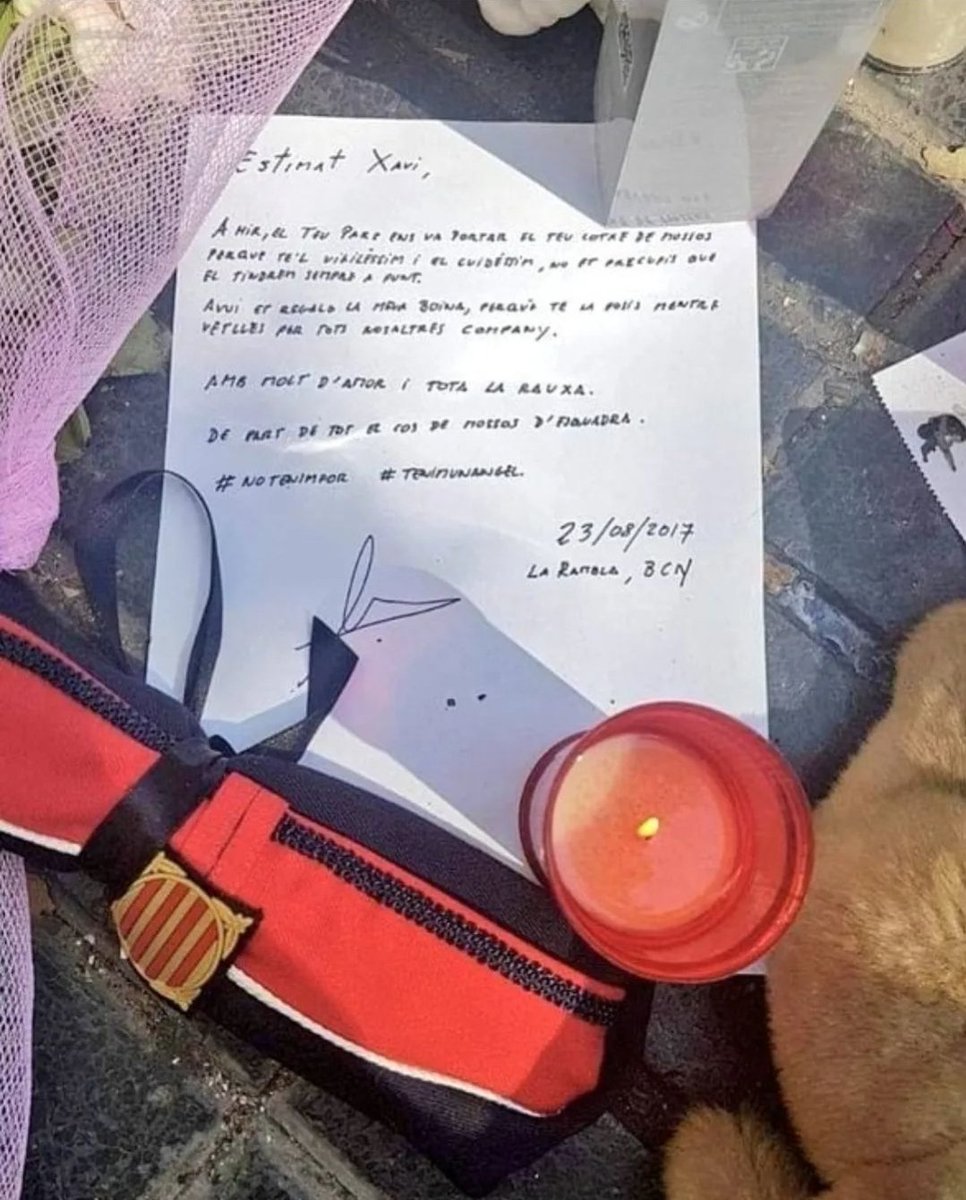 Estimat Xavi,
AHIR, EL TEU PARE ENS VA PORTAR EL TEU COTXE DE MOSSOS
PERQUE TE'L VIGILÉSSIM I EL CUIDÉSSIM, NO ET PRECUPIS QUE
EL TINDREM SEMPRE A PUNT.
AVUI ET REGALO LA MEVA BOINA, PERQUÈ TE LA POSIS MENTRE
VETLLES PER TOTS NOSALTRES COMPANY.
AMB MOLT D'AMOR I TOTA LA RAUXA.
DE PART DE TOT EL COS DE MOSSOS D'ESQUADRA.
#NOTENIMPOR #TENIMUNANGEL.
23/08/2017
LA RAMBLA, BCN